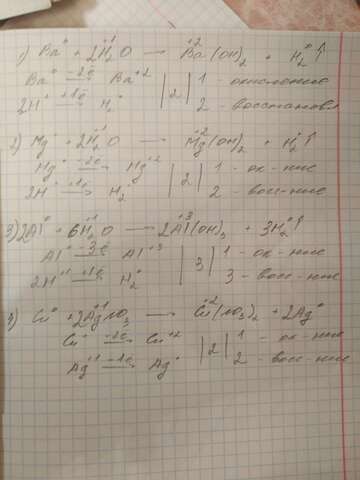 1) Ba⁰ + 2H₂⁺¹O → Ba⁺²(OH)₂ + H₂⁰↑
Ba⁰ −2e→ Ba⁺² | 2 | 1 - окисление
2H⁺¹ +1e→ H₂⁰ 2 - восстановл
2) Mg⁰ + 2H₂⁺¹O → Mg⁺²(OH)₂ + H₂⁰↑
Mg⁰ −2e→ Mg⁺² | 2 | 1 - ок-ние
2H⁺¹ +1e→ H₂⁰ 2 - вос-ние
3) 2Al⁰ + 6H₂⁺¹O → 2Al⁺³(OH)₃ + 3H₂⁰↑
Al⁰ −3e→ Al⁺³ | 3 | 1 - ок-ние
2H⁺¹ +1e→ H₂⁰ 3 - вос-ние
4) Cu⁰ + 2Ag⁺¹NO₃ → Cu⁺²(NO₃)₂ + 2Ag⁰
Cu⁰ −2e→ Cu⁺² | 2 | 1 - ок-ние
Ag⁺¹ +1e→ Ag⁰ 2 - вос-ние